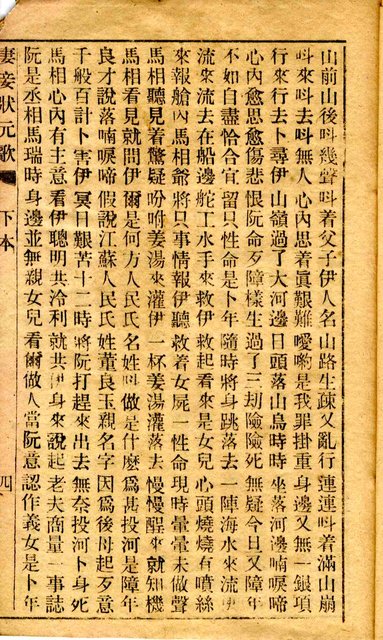 山前山後呌幾聲呌着父子伊人名山路生疎又亂行連連呌着滿山崩
呌來呌去呌無人心內思着眞艱難噯喲是我罪掛重身邊又無一銀項
行來行去卜尋伊山嶺過了大河邊日頭落山鳥時時坐落河邊喃喉啼
心內愈思愈傷悲恨阮命歹障樣生過了三刼險險死無疑今日又障年
不如自盡恰合宜留只性命是卜年隨時將身跳落去一陣海水來流伊
流來流去在船邊舵工水手來救伊救起看來是女兒心頭燒燒有噴絲
來報艙內馬相爺將只事情報伊聽救着女屍一性命現時暈暈未做聲
馬相聽見着驚疑吩咐姜湯來灌伊一杯姜湯灌落去慢慢醒來就知機
馬相看見就問伊爾是何方人民氏名姓呌做是什麼爲甚投河是障年
良才說落喃喉啼假說江蘇人民氏姓董良玉親名字因爲後母起歹意
千般百計卜害伊冥日艱苦十二時將阮打趕來出去無奈投河卜身死
馬相心內有主意看伊聰明共冷利就共伊身來說起老夫商量一事誌
阮是丞相馬瑞時身邊並無親女兒看爾做人當阮意認作義女是卜年
妻妾狀元歌 下本 四